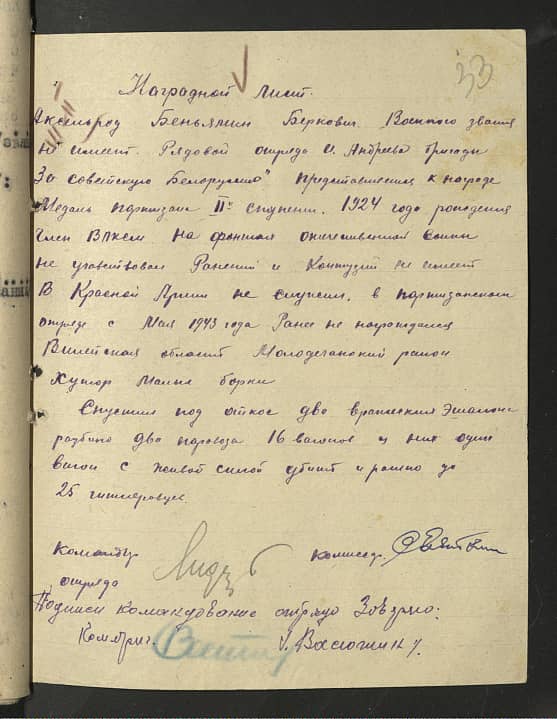 33
Наградной лист.
Аксельрод Беньямин Беркович. Военного звания
не имеет. Рядовой отряда О. Андреева бригады
За советскую Белоруссию" представляется к награде
Медаль партизана IIй ступени. 1924 года рождения
Член ВЛКСМ на фронтах отечественной войны
не участвовал Ранений и Контузий не имеет
В Красной Армии не служил, в партизанском
отряде с Мая 1943 года Ранее не награждался
Вилейская область Молодечанский район
Хутор Малые борки
Спустил под откос два вражеских эшалона
разбито два паровоза 16 вагонов из них один
вагон с живой силой убито и ранено до
25 гитлеровцев.
Командир комиссар
отряда
Подписи командование отряда Заверяю:
Комбриг. /. Васютин /.